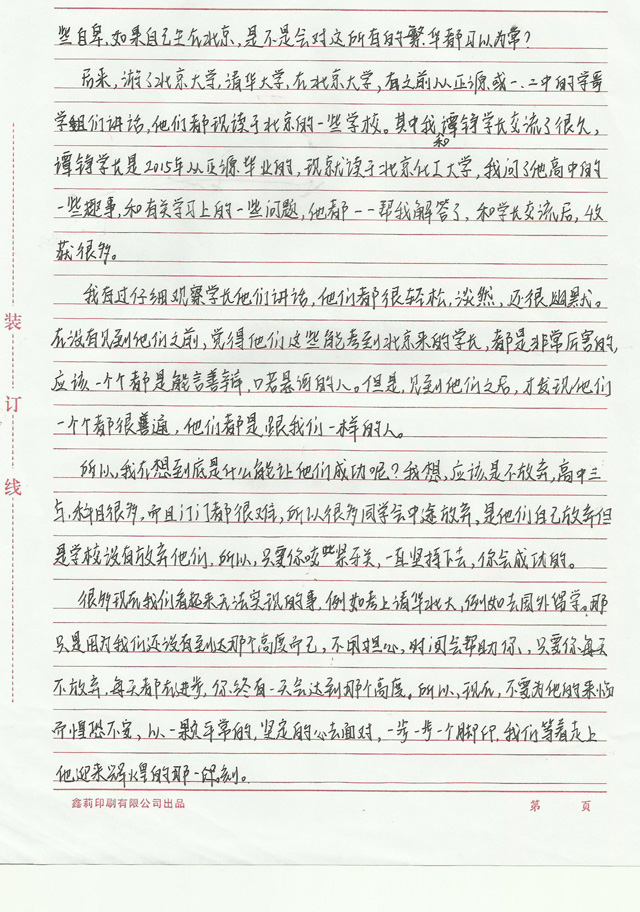 些自卑,如果自己生在北京,是不是会对这所有的繁华都习以为常?
后来,游了北京大学,清华大学,在北京大学,有之前从正源或一.二中的学哥
学姐们讲话,他们都现读于北京的一些学校。其中我和谭铮学长交流了很久,
谭铮学长是2015年从正源毕业的,现就读于北京化工大学,我问了他高中的
一些趣事,和有关学习上的一些问题,他都一一帮我解答了,和学长交流后,收
获很多。
我有过仔细观察学长他们讲话,他们都很轻松,淡然,还很幽默。
在没有见到他们之前,觉得他们这些能考到北京来的学长,都是非常厉害的,
应该一个个都是能言善辩,口若悬河的人。但是,见到他们之后,才发现他们
一个个都很普通,他们都是跟我们一样的人。
所以,我在想到底是什么能让他们成功呢?我想,应该是不放弃,高中三
年,科目很多,而且门门都很难,所以很多同学会中途放弃,是他们自己放弃但
是学校没有放弃他们,所以,只要你咬紧牙关,一直坚持下去,你会成功的。
很多现在我们看起来无法实现的事,例如考上清华北大,例如去国外留学。那
只是因为我们还没有到达那个高度而已,不用担心,时间会帮助你,只要你每天
不放弃,每天都在进步,你终有一天会达到那个高度。所以,现在,不要为他的来临
而惶恐不安,以一颗平常的,坚定的心去面对,一步一步一个脚印,我们等着走上
他迎来辉煌的那一时刻。
装订线
鑫莉印刷有限公司出品
第 页